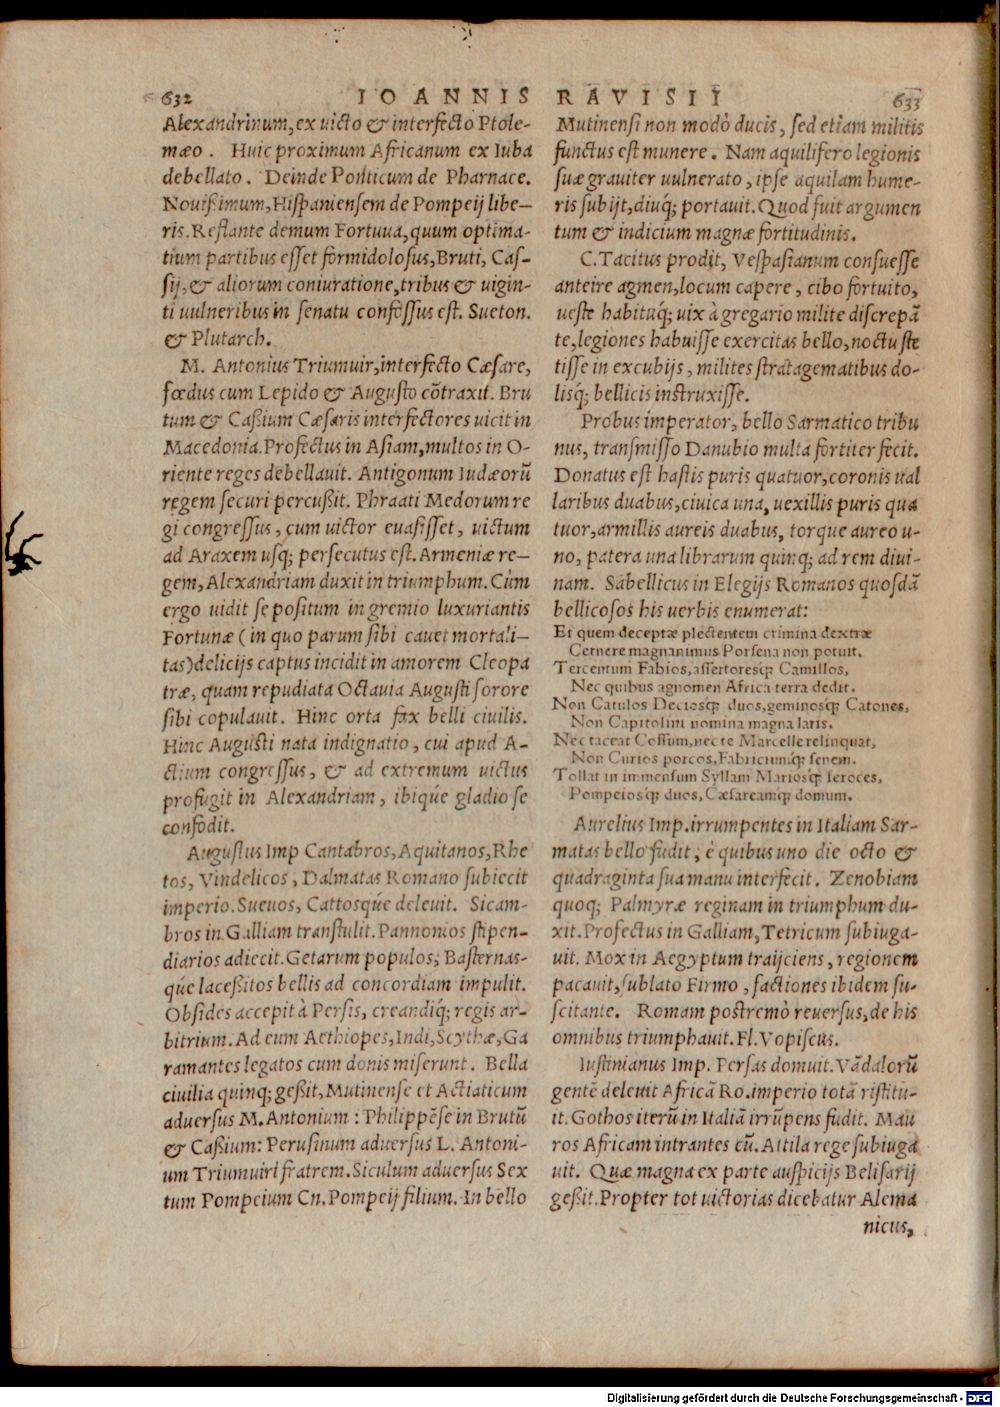 632 IOANNIS RAVISII 633
Alexandrinum, ex uicto & interfecto Ptole-
mæo. Huic proximum Africanum ex Iuba
debellato. Deinde Ponticum de Pharnace.
Nouißimum, Hispaniensem de Pompeij libe-
ris. Restante demum Fortuua, quum optima-
tium partibus esset formidolosus, Bruti, Cas-
sij, & aliorum coniuratione, tribus & uigin-
ti uulneribus in senatu confossus est. Sueton.
& Plutarch.
M. Antonius Triumuir, interfecto Cæsare,
fœdus cum Lepido & Augusto cõtraxit. Bru
tum & Caßium Cæsaris interfectores uicit in
Macedonia. Profectus in Asiam, multos in O-
riente reges debellauit. Antigonum Iudæorũ
regem securi percußit. Phraati Medorum re
gi congressus, cum uictor euasisset, uictum
ad Araxem usq; persecutus est. Armeniæ re-
gem, Alexandriam duxit in triumphum. Cùm
ergo uidit se positum in gremio luxuriantis
Fortunæ (in quo parum sibi cauet mortali-
tas) delicijs captus incidit in amorem Cleopa
træ, quam repudiata Octauia Augusti sorore
sibi copulauit. Hinc orta fax belli ciuilis.
Hinc Augusti nata indignatio, cui apud A-
ctium congressus, & ad extremum uictus
profugit in Alexandriam, ibiqúe gladio se
confodit.
Augustus Imp Cantabros, Aquitanos, Rhe
tos, Vindelicos, Dalmatas Romano subiecit
imperio. Sueuos, Cattosqúe deleuit. Sicam-
bros in Galliam transtulit. Pannonios stipen-
diarios adiecit. Getarum populos, Basternas-
qúe laceßitos bellis ad concordiam impulit.
Obsides accepit à Persis, creandiq́; regis ar-
bitrium. Ad eum Aethiopes, Indi, Scythæ, Ga
ramantes legatos cum donis miserunt. Bella
ciuilia quinq; geßit, Mutinense et Actiaticum
aduersus M. Antonium: Philippẽse in Brutũ
& Caßium: Perusinum aduersus L. Antoni-
um Triumuiri fratrem. Siculum aduersus Sex
tum Pompeium Cn. Pompeij filium. In bello
Mutinensi non modò ducis, sed etiam militis
functus est munere. Nam aquilifero legionis
suæ grauiter uulnerato, ipse aquilam hume-
ris subijt, diuq; portauit. Quod fuit argumen
tum & indicium magnæ fortitudinis.
C. Tacitus prodit, Vespasianum consuesse
anteire agmen, locum capere, cibo fortuito,
ueste habituq́; uix à gregario milite discrepã
te, legiones habuisse exercitas bello, noctu ste
tisse in excubijs, milites stratagematibus do-
lisq́; bellicis instruxisse.
Probus imperator, bello Sarmatico tribu
nus, transmisso Danubio multa fortiter fecit.
Donatus est hastis puris quatuor, coronis ual
laribus duabus, ciuica una, uexillis puris qua
tuor, armillis aureis duabus, torque aureo u-
no, patera una librarum quinq; ad rem diui-
nam. Sabellicus in Elegijs Romanos quosdã
bellicosos his uerbis enumerat:
Et quem deceptæ plectentem crimina dextræ
Cernere magnanimus Porsena non potuit.
Tercentum Fabios, assertoresq; Camillos,
Nec quibus agnomen Africa terra dedit.
Non Catulos Deciosq; duos, geminosq; Catones,
Non Capitolini nomina magna laris.
Nec taceat Cossum, nec te Marcelle relinquat,
Non Curios porcos, Fabriciumq; senem.
Tollat in immensum Syllam Mariosq; feroces,
Pompeiosq; duos, Cæsareamq; domum.
Aurelius Imp. irrumpentes in Italiam Sar-
matas bello fudit, è quibus uno die octo &
quadraginta sua manu interfecit. Zenobiam
quoq; Palmyræ reginam in triumphum du-
xit. Profectus in Galliam, Tetricum subiuga-
uit. Mox in Aegyptum traijciens, regionem
pacauit, sublato Firmo, factiones ibidem su-
scitante. Romam postremò reuersus, de his
omnibus triumphauit. Fl. Vopiscus.
Iustinianus Imp. Persas domuit. Vãdalorũ
gentẽ deleuit Africã Ro. imperio totã ristitu-
it. Gothos iterũ in Italiã irrũpens fudit. Mau
ros Africam intrantes cũ. Attila rege subiuga
uit. Quæ magna ex parte auspicijs Belisarij
geßit. Propter tot uictorias dicebatur Alema
nicus,
Digitalisierung gefördert durch die Deutsche Forschungsgemeinschaft - DFG